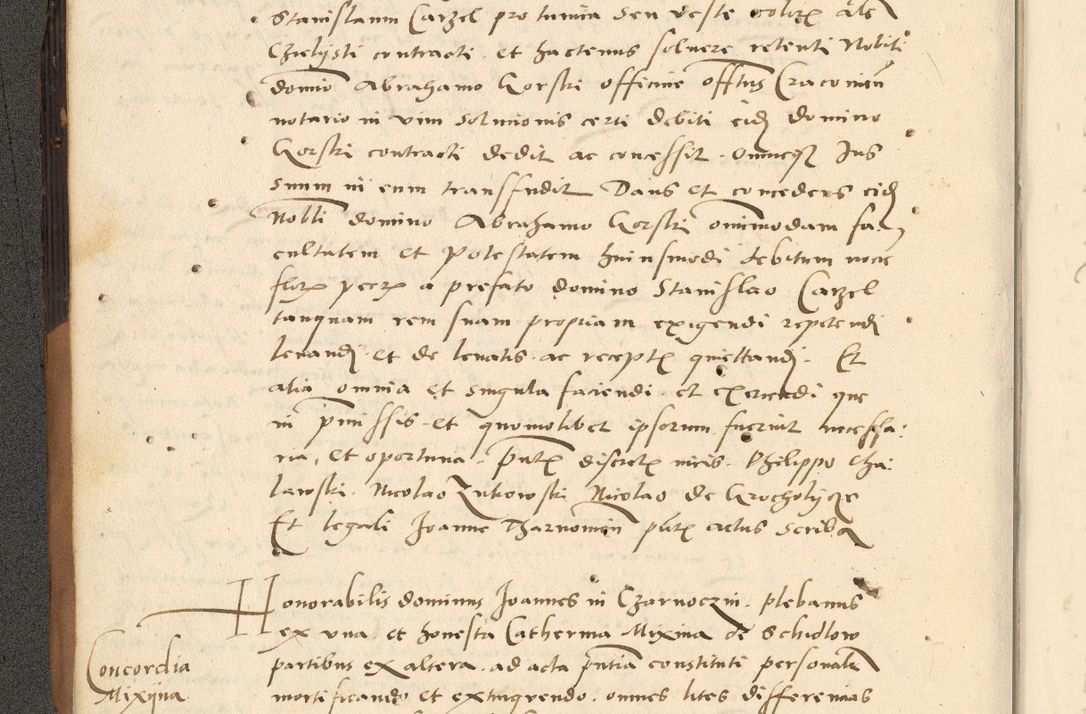 Stanislaum Carzel pro tunica seu veste
Czielysti contracti et hactenus soluere retenti Nobili
domino Abrahamo Gorski officine offtus Cracouien
notario in vim solucionis certi debiti eid domino
Gorski contracti dedit ac concessit. Omneq Ius
suum in eum transfudit Dans et concedens eid
Nobli domino Abrahamo Gorski omnimodam fa
cultatem et potestatem huiusmodi debitum
a prefato domino Stanislao Carzel
tanquam rem suam propriam exigendi repetendi
leuandi et de leuatis ac recept quiettandi. Et
alia omnia et singula faciendi et exercendi que
in pmissis et quomolibet ipsorum fuerint necessa:
ria, et oportuna. pntt discret viris. Philippo Cha
lawski. Nicolao Zukowski Nicolao de Grocholycze
Et legali Joanne Tharnowien pntt actus scriba
Honorabilis dominus Joannes in Czarnoczin. plebanus
ex vna et honesta Catherina Mixina de Schidlow
partibus ex altera. ad acta pntia constituti personalr
mortificando et extinguendo. omnes lites differencias
Concordia
Mixyna